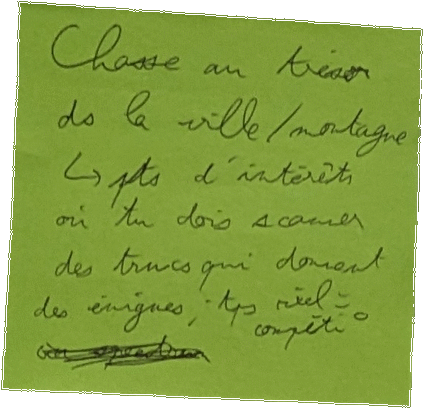 Chasse au trésor
ds la ville/montagne
↳ pts d'intérêts
où tu dois scanner
des trucs qui donnent
des énigmes, tps réel =
compéti°